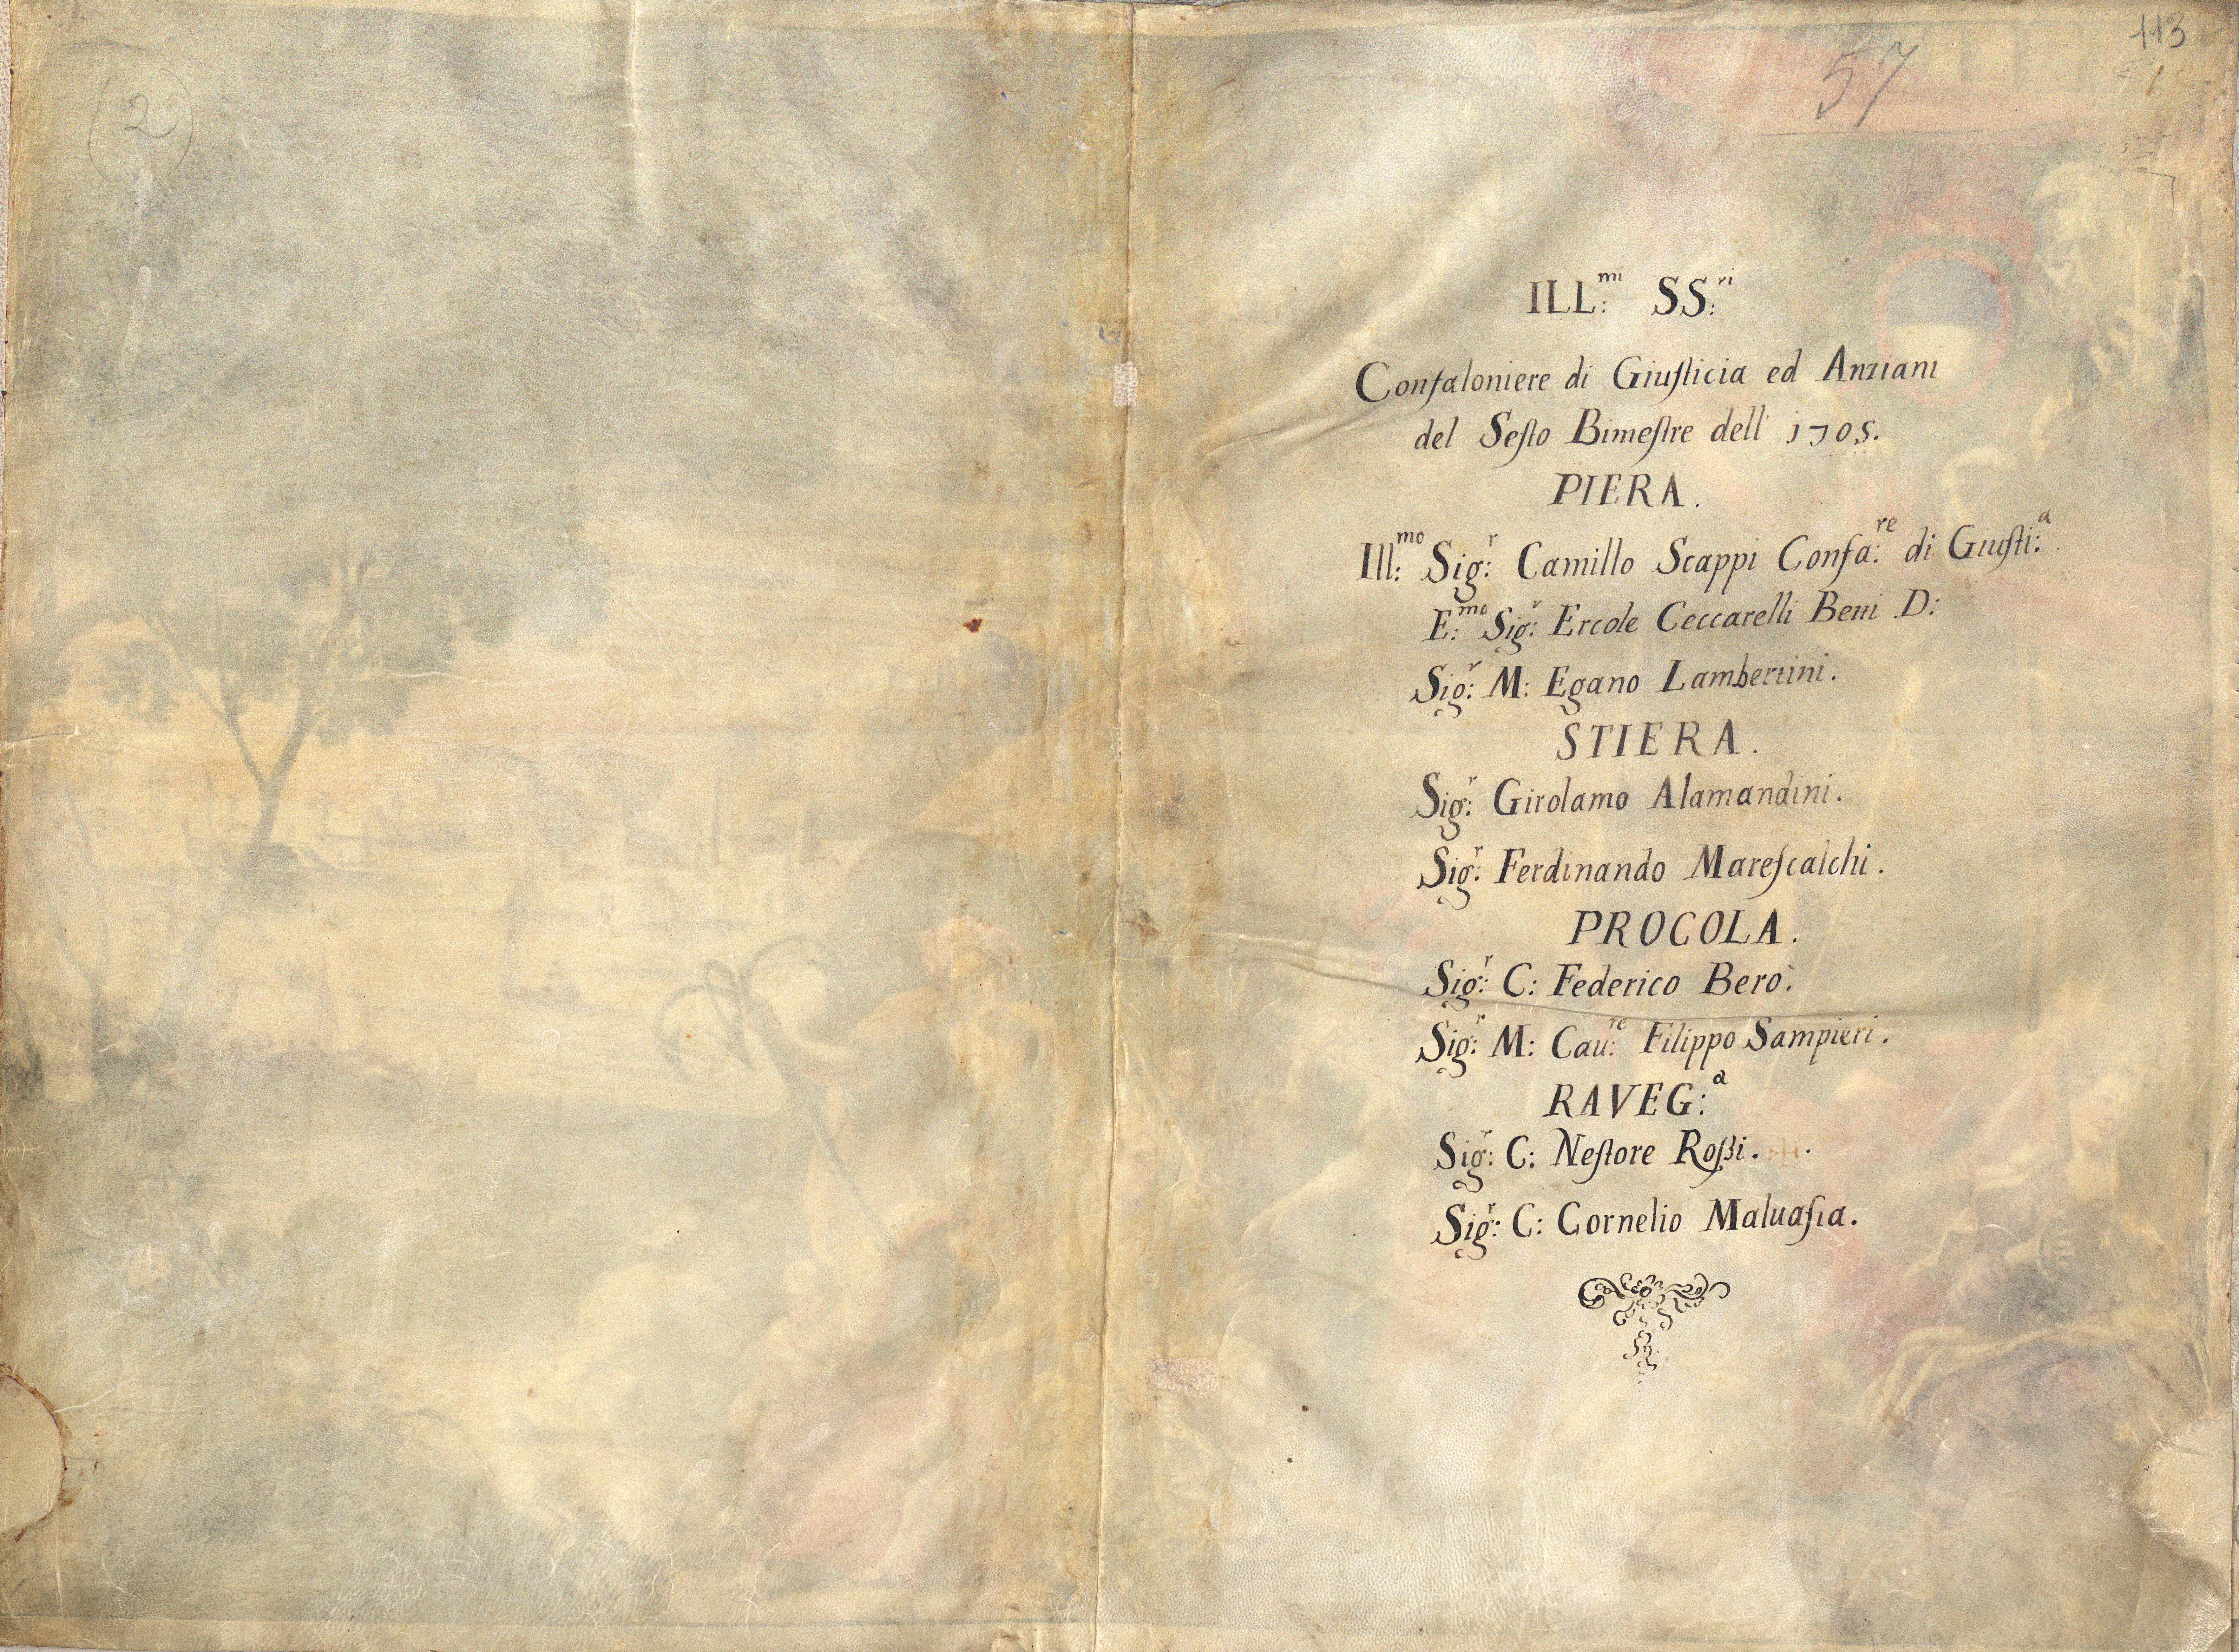 (2)
113
57
ILL:mi SS:ri
Confaloniere di Giuſticia ed Anziani
del Seſto Bimeſtre dell' 1705.
PIERA.
Ill:mo Sig:r Camillo Scappi Confa:re di Giuſti:a
E:mo Sig:r Ercole Ceccarelli Betti D:
Sig:r M: Egano Lambertini.
STIERA.
Sig:r Girolamo Alamandini.
Sig:r Ferdinando Mareſcalchi.
PROCOLA.
Sig:r C: Federico Berò.
Sig:r M: Cau:re Filippo Sampieri.
RAVEG:a
Sig:r C: Neſtore Roßi.
Sig:r C: Cornelio Maluaſia.